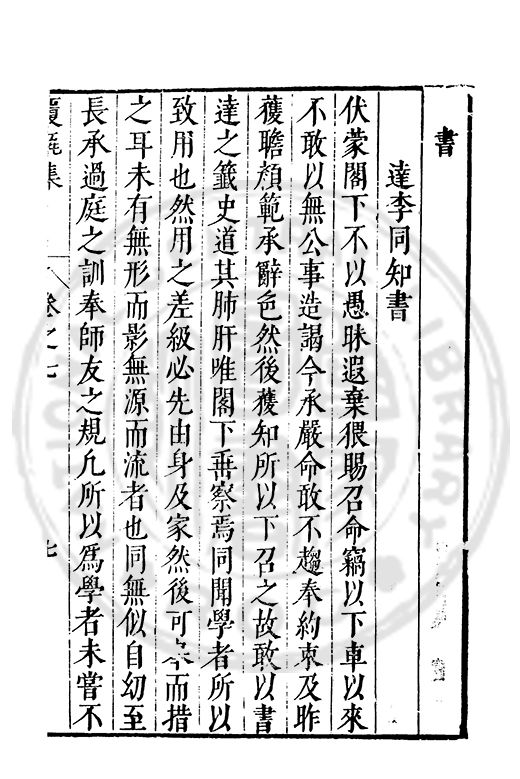 書
達李同知書
伏蒙閣下不以愚昧遐棄猥賜召命竊以下車以來
不敢以無公事造謁今承嚴命敢不趨奉約束及昨
獲瞻顔範承辭色然後獲知所以下召之故敢以書
達之籤史道其肺肝唯閣下垂察焉同聞學者所以
致用也然用之差級必先由身及家然後可 而措
之耳未有無形而影無源而流者也同無似自幼至
長承過庭之訓奉師友之規凡所以爲學者未嘗不
集 卷之七 七
LIBRARY